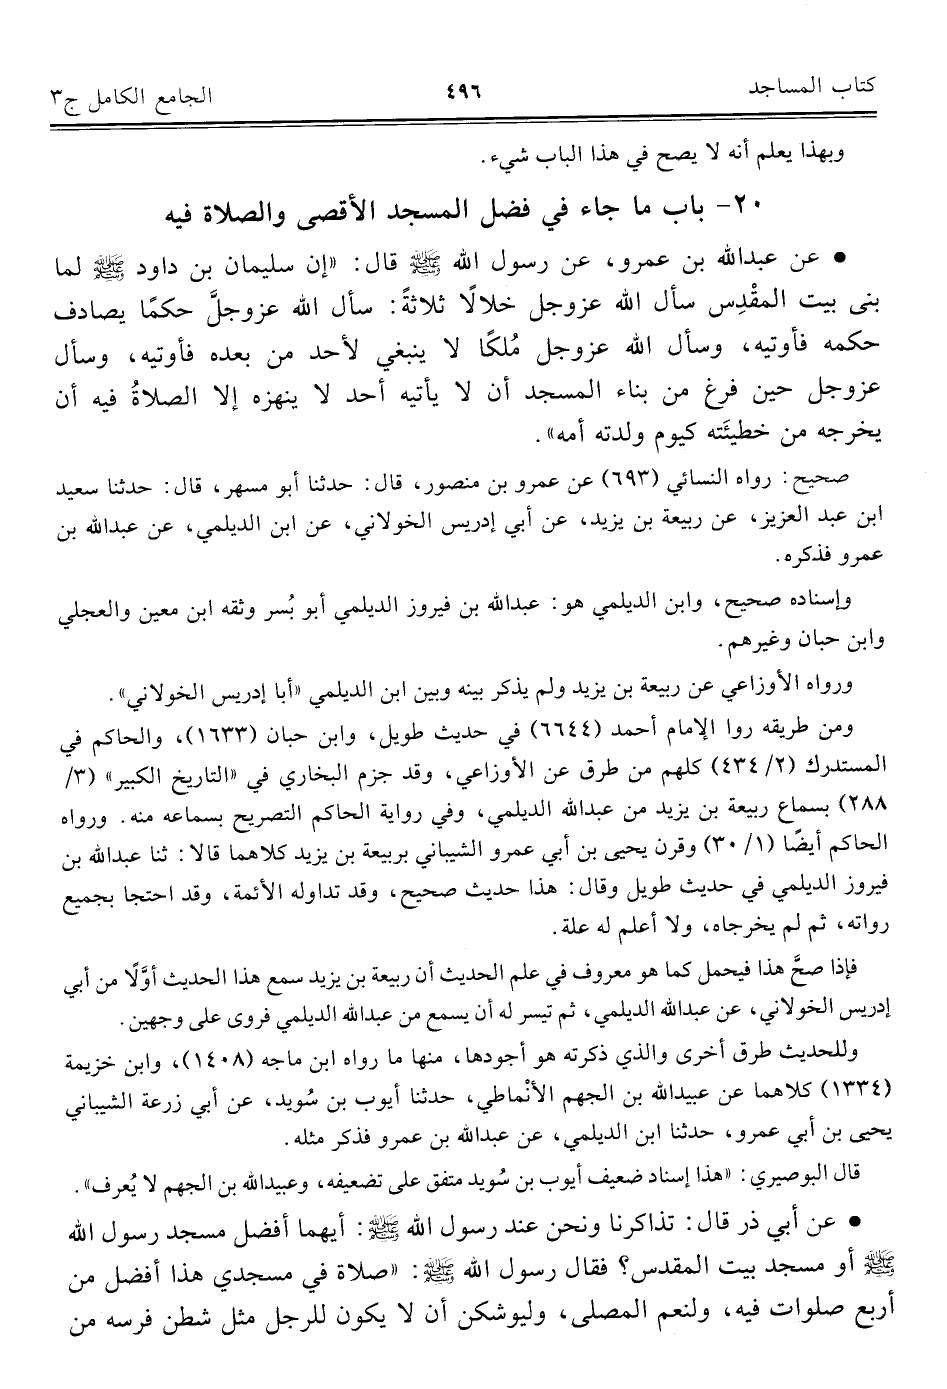 كتاب المساجد ٤٩٦ الجامع الكامل ج٣
وبهذا يعلم أنه لا يصح في هذا الباب شيء.
٢٠- باب ما جاء في فضل المسجد الأقصى والصلاة فيه
• عن عبدالله بن عمرو، عن رسول الله ﷺ قال: «إن سليمان بن داود ﷺ لما
بنى بيت المقْدِس سأل الله عزوجل خلالًا ثلاثةً: سأل الله عزوجلَّ حكمًا يصادف
حكمه فأوتيه، وسأل الله عزوجل مُلكًا لا ينبغي لأحد من بعده فأوتيه، وسأل
عزوجل حين فرغ من بناء المسجد أن لا يأتيه أحد لا ينهزه إلا الصلاةُ فيه أن
يخرجه من خطيئَته كيوم ولدته أمه».
صحيح: رواه النسائي (٦٩٣) عن عمرو بن منصور، قال: حدثنا أبو مسهر، قال: حدثنا سعيد
ابن عبد العزيز، عن ربيعة بن يزيد، عن أبي إدريس الخولاني، عن ابن الديلمي، عن عبدالله بن
عمرو فذكره.
وإسناده صحيح، وابن الديلمي هو: عبدالله بن فيروز الديلمي أبو بُسر وثقه ابن معين والعجلي
وابن حبان وغيرهم.
ورواه الأوزاعي عن ربيعة بن يزيد ولم يذكر بينه وبين ابن الديلمي «أبا إدريس الخولاني».
ومن طريقه روا الإمام أحمد (٦٦٤٤) في حديث طويل، وابن حبان (١٦٣٣)، والحاكم في
المستدرك (٢/ ٤٣٤) كلهم من طرق عن الأوزاعي، وقد جزم البخاري في «التاريخ الكبير» (٣/
٢٨٨) بسماع ربيعة بن يزيد من عبدالله الديلمي، وفي رواية الحاكم التصريح بسماعه منه. ورواه
الحاكم أيضًا (١/ ٣٠) وقرن يحيى بن أبي عمرو الشيباني بربيعة بن يزيد كلاهما قالا: ثنا عبدالله بن
فيروز الديلمي في حديث طويل وقال: هذا حديث صحيح، وقد تداوله الأئمة، وقد احتجا بجميع
رواته، ثم لم يخرجاه، ولا أعلم له علة.
فإذا صحَّ هذا فيحمل كما هو معروف في علم الحديث أن ربيعة بن يزيد سمع هذا الحديث أوَّلًا من أبي
إدريس الخولاني، عن عبدالله الديلمي، ثم تيسر له أن يسمع من عبدالله الديلمي فروى على وجهين.
وللحديث طرق أخرى والذي ذكرته هو أجودها، منها ما رواه ابن ماجه (١٤٠٨)، وابن خزيمة
(١٣٣٤) كلاهما عن عبيدالله بن الجهم الأنْماطي، حدثنا أيوب بن سُويد، عن أبي زرعة الشيباني
يحيى بن أبي عمرو، حدثنا ابن الديلمي، عن عبدالله بن عمرو فذكر مثله.
قال البوصيري: «هذا إسناد ضعيف أيوب بن سُويد متفق على تضعيفه، وعبيدالله بن الجهم لا يُعرف».
• عن أبي ذر قال: تذاكرنا ونحن عند رسول الله ﷺ: أيهما أفضل مسجد رسول الله
ﷺ أو مسجد بيت المقدس؟ فقال رسول الله ﷺ: «صلاة في مسجدي هذا أفضل من
أربع صلوات فيه، ولنعم المصلى، وليوشكن أن لا يكون للرجل مثل شطن فرسه من